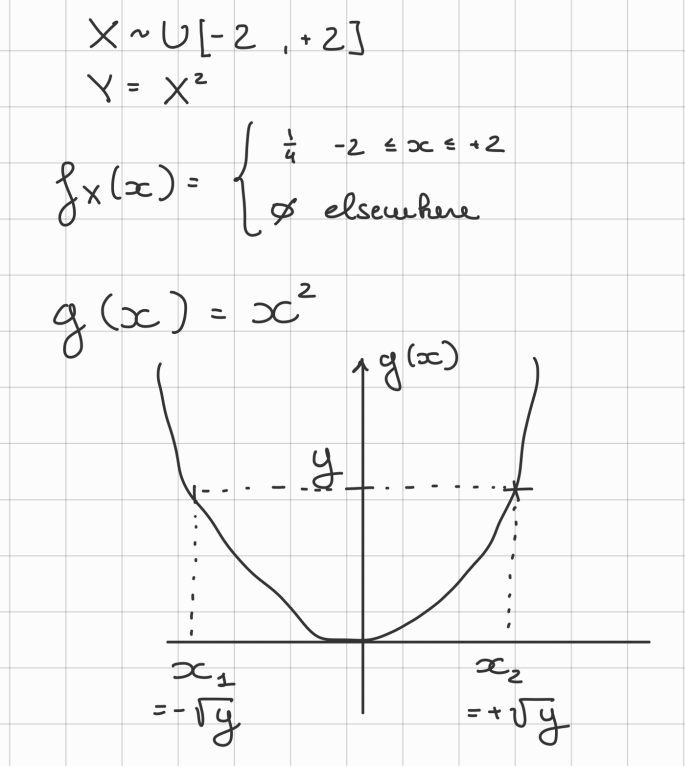 X ~ U[-2 , +2]
Y = X²
f_X(x) = { 1/4 -2 ≤ x ≤ +2
∅ elsewhere
g(x) = x²
g(x)
y
x₁ x₂
= -√y = +√y